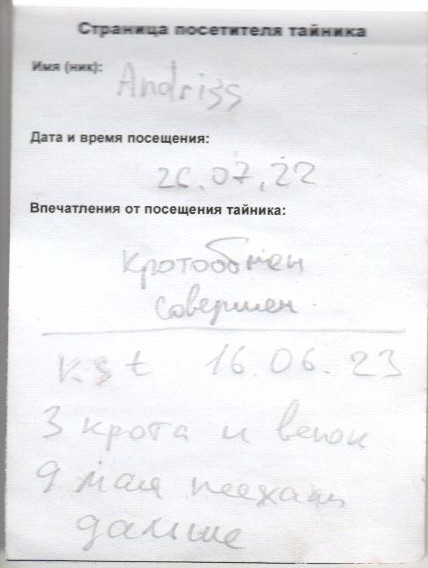 Страница посетителя тайника
Имя (ник):
Andriss
Дата и время посещения:
26.07.22
Впечатления от посещения тайника:
Кротообмен
совершен
16.06.23
3 крота и венок
9 мая
дальше